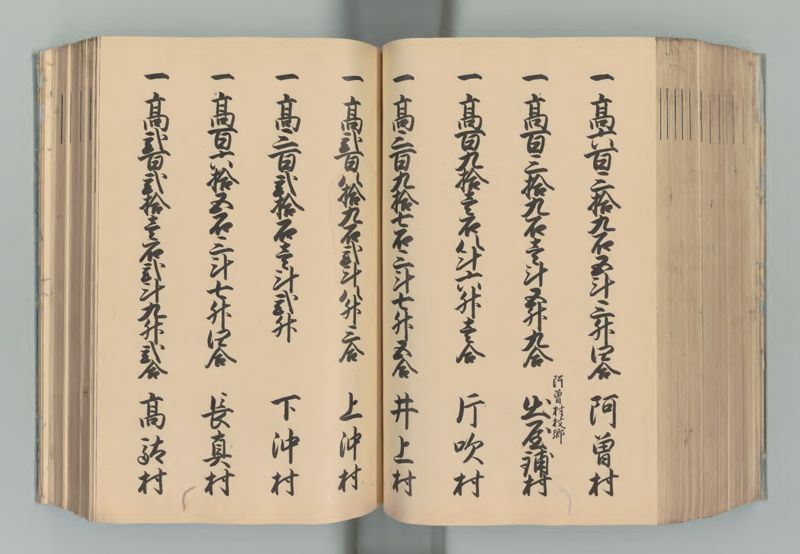 一高六百三拾九石五斗三升四合 阿曽村
阿曽村枝郷
一高百三拾九石壱斗五升九合 出屋鋪村
一高百九拾壱石八斗六升壱合 片吹村
一高三百九拾七石三斗七升五合 井上村
一高弐百八拾九石弐斗八升三合 上沖村
一高三百弐拾石壱斗弐升 下沖村
一高百六拾五石三斗七升四合 長真村
一高弐百弐拾壱石弐斗九升弐合 高 村